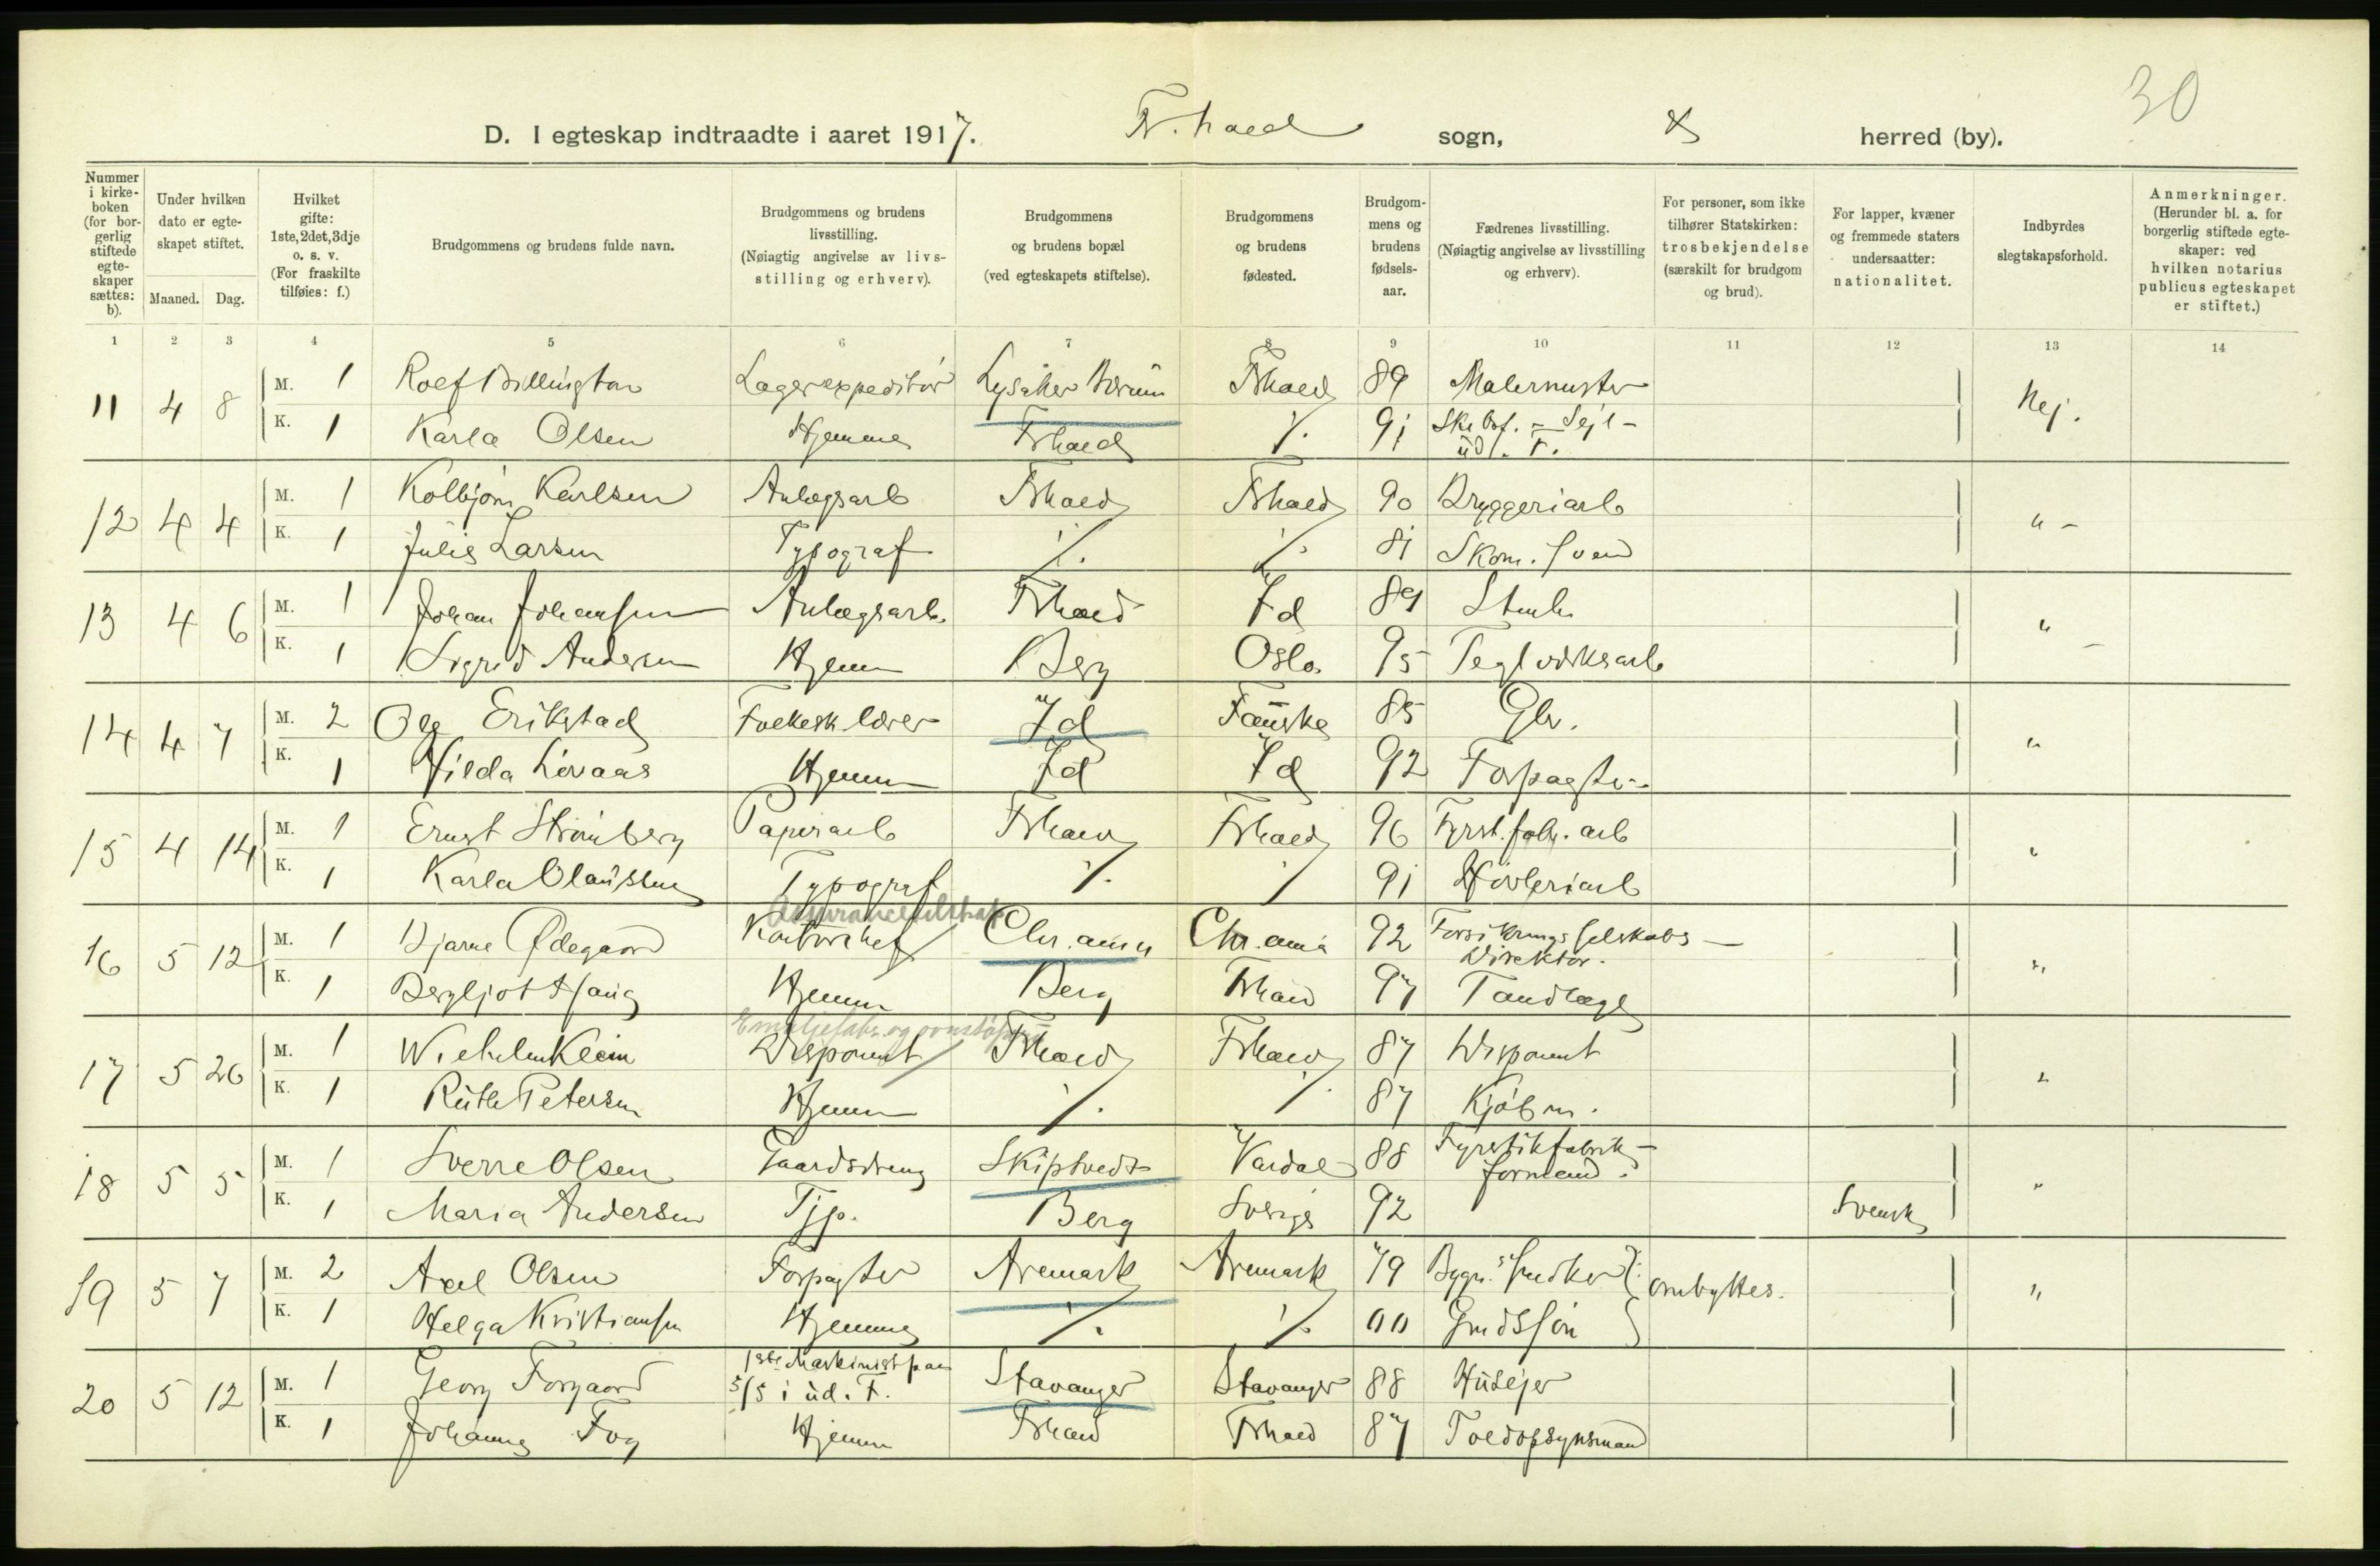 30
D. I egteskap indtraadte i aaret 1917. F.hald sogn, & herred (by).
Nummer i kirke-boken (for bor-gerlig stiftede egte-skaper sættes: b).
Under hvilken dato er egte-skapet stiftet.
Maaned. Dag.
Hvilket gifte: 1ste, 2det, 3dje o. s. v. (For fraskilte tilføies: f.)
Brudgommens og brudens fulde navn.
Brudgommens og brudens livsstilling. (Nøiagtig angivelse av livs-stilling og erhverv).
Brudgommens og brudens bopæl (ved egteskapets stiftelse).
Brudgommens og brudens fødested.
Brudgom-mens og brudens fødsels-aar.
Fædrenes livsstilling. (Nøiagtig angivelse av livsstilling og erhverv).
For personer, som ikke tilhører Statskirken: trosbekjendelse (særskilt for brudgom og brud).
For lapper, kvæner og fremmede staters undersaatter: nationalitet.
Indbyrdes slegtskapsforhold.
Anmerkninger. (Herunder bl. a. for borgerlig stiftede egte-skaper: ved hvilken notarius publicus egteskapet er stiftet.)
1 2 3 4 5 6 7 8 9 10 11 12 13 14
11 4 8 M. 1 Rolf Billington Lagerexpeditör Lysaker Bærum Fhald 89 Malermester Nej.
K. 1 Karla Olsen Hjemme Fhald ⁒ 91 Skibsf. - Sejl - ud. F.
12 4 4 M. 1 Kolbjörn Karlsen Anlægsarb Fhald Fhald 90 Bryggeriarb " -
K. 1 Julie Larsen Typograf ⁒ ⁒ 81 Skom. svend
13 4 6 M. 1 Johan Johansen Anlægsarb. Fhald Id 89 Stenh. " -
K. 1 Sigrid Andersen Hjemm Berg Oslo 95 Teglværksarb
14 4 7 M. 2 Ole Erikstad Folkesk.lærer Id Fauske 85 Gbr. "
K. 1 Hilda Lövaas Hjemm Id Id 92 Forpagter
15 4 14 M. 1 Ernst Strömberg Papirarb Fhald Fhald 96 Fyrst.fabr.arb "
K. 1 Karla Olaussen Typograf ⁒ ⁒ 91 Hövleriarb
Assuranceselskap
16 5 12 M. 1 Bjarne Ødegaard Kontorchef Chr.ania Chr.ania 92 Forsikringsselskabs - Direktör. "
K. 1 Bergljot Hauig Hjemm Berg Fhald 97 Tandlæge
Emaljefabr. og ovnstöperi
17 5 26 M. 1 Wilhelm Klein Disponent Fhald Fhald 87 Disponent "
K. 1 Ruth Petersen Hjemm ⁒ ⁒ 87 Kjöbm.
18 5 5 M. 1 Sverre Olsen Gaardsdreng Skiptvedt Vardal 88 Fyrstikfabrik - formand. "
K. 1 Maria Andersen Tjp. Berg Sverige 92 Svensk
19 5 7 M. 2 Axel Olsen Forpagter Aremark Aremark 79 Bygn.snedker } ombyttes. "
K. 1 Helga Kristiansen Hjemme ⁒ ⁒ 00 Grudssön }
20 5 12 M. 1 Georg Forgaard 1ste Maskinist paa S/S i ud. F. Stavanger Stavanger 88 Husejer
K. 1 Johanne Fog Hjemm Fhald Fhald 87 Toldopsynsmand